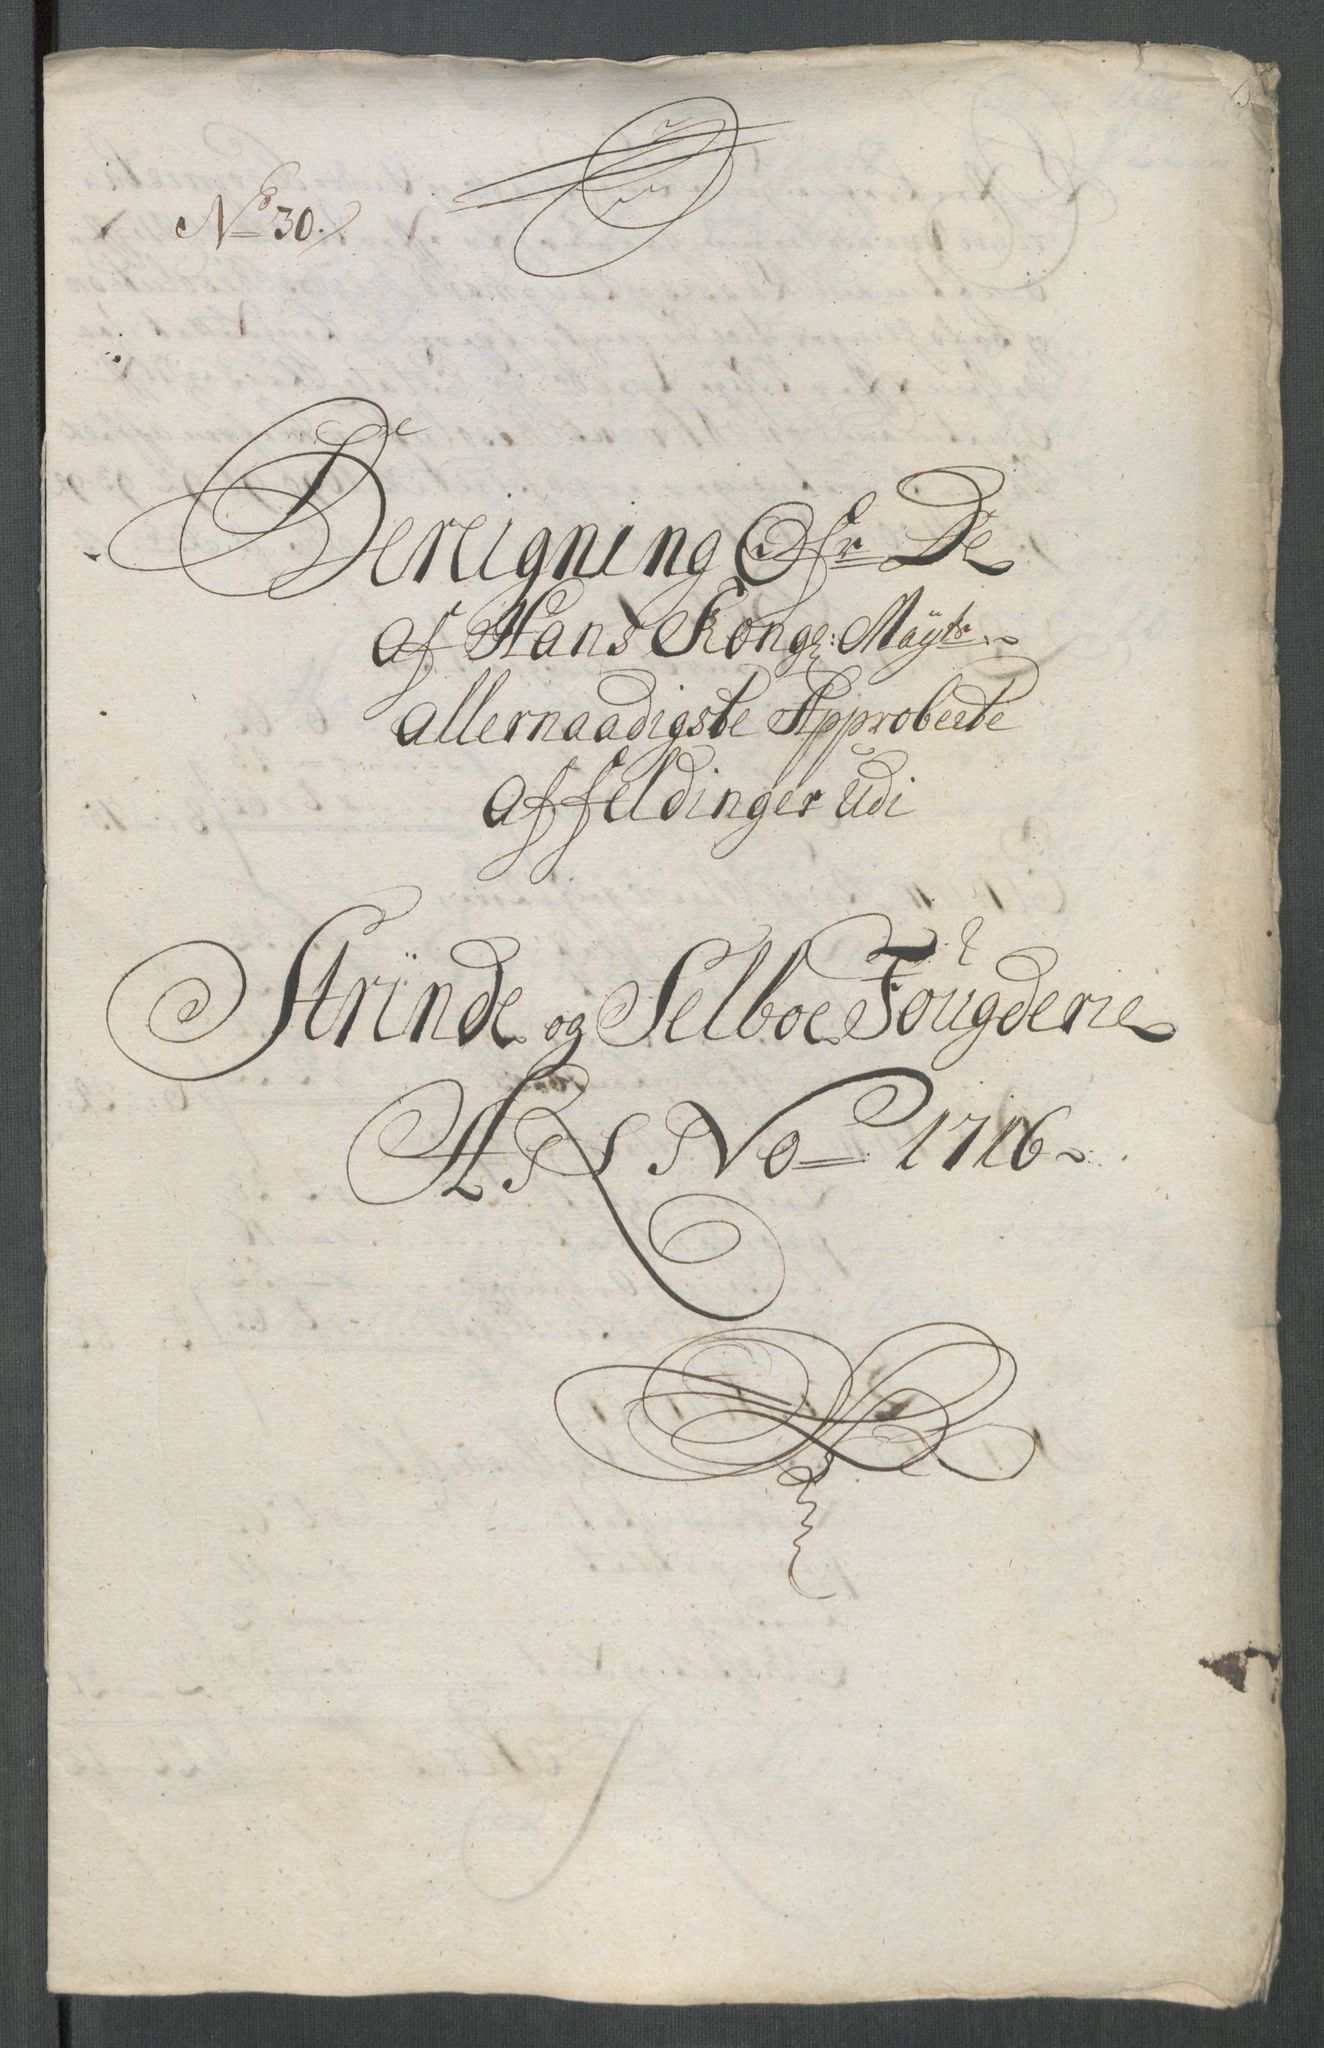 No 30.
Bereigning Ofr De
af Hans Kongl: Mayts
allernaadigste Approberte
affeldinger udi
Strinde og Selboe Fougderie
A No 1716